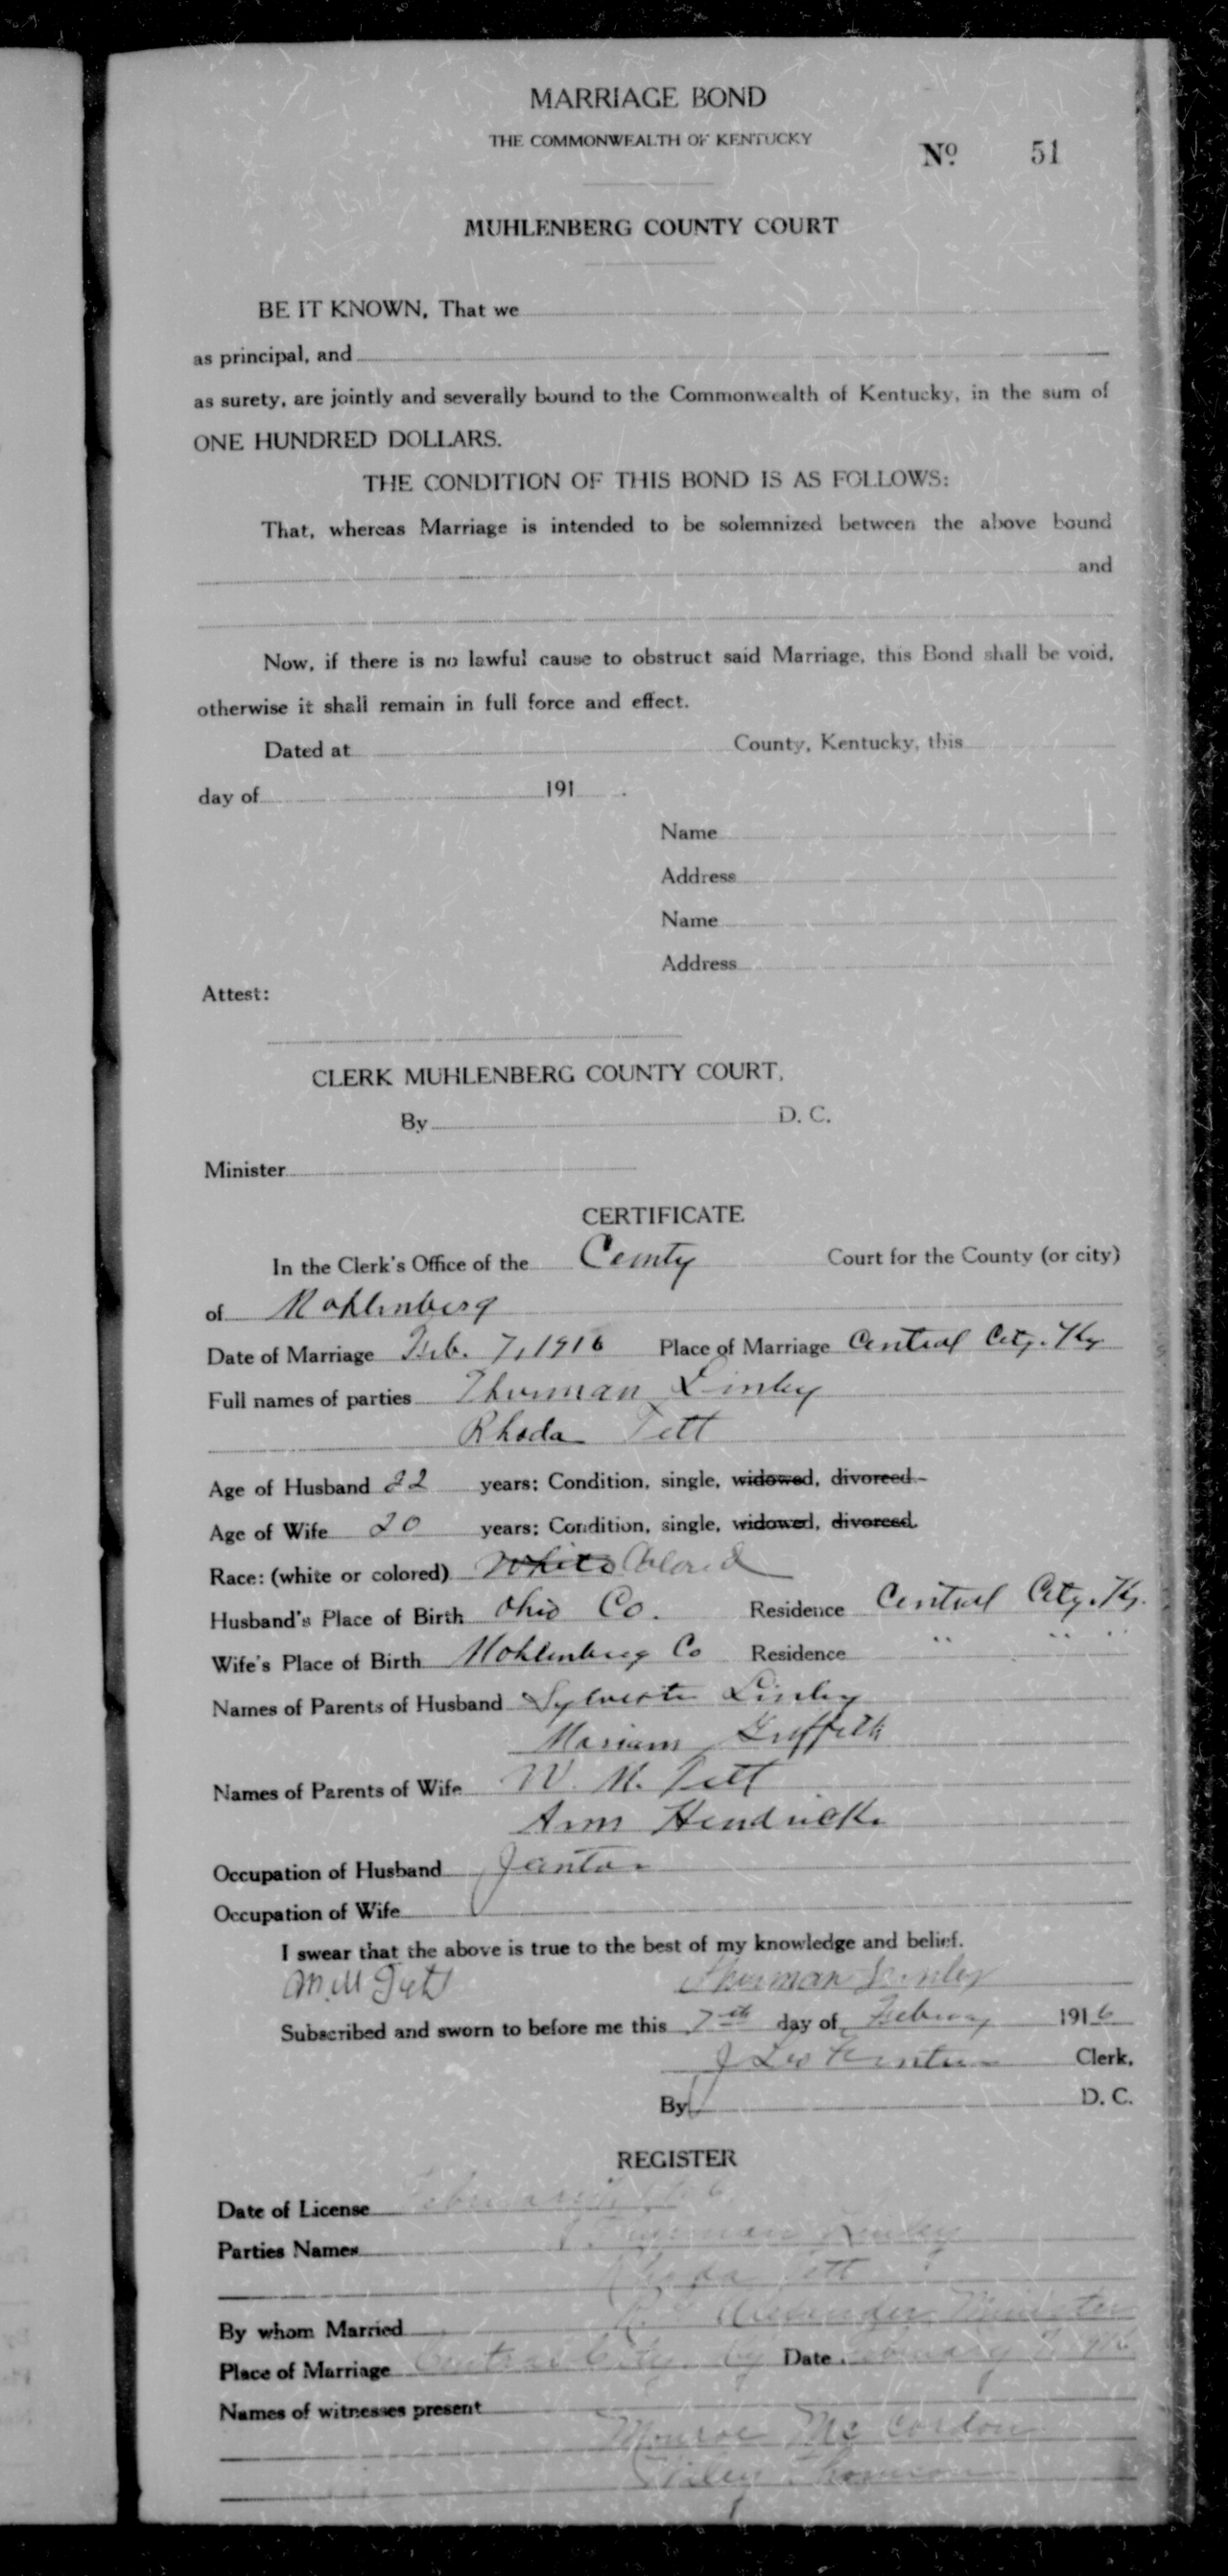 MARRIAGE BOND
THE COMMONWEALTH OF KENTUCKY
No. 51
MUHLENBERG COUNTY COURT
BE IT KNOWN, That we
as principal, and
as surety, are jointly and severally bound to the Commonwealth of Kentucky, in the sum of
ONE HUNDRED DOLLARS.
THE CONDITION OF THIS BOND IS AS FOLLOWS:
That, whereas Marriage is intended to be solemnized between the above bound
and
Now, if there is no lawful cause to obstruct said Marriage, this Bond shall be void,
otherwise it shall remain in full force and effect.
Dated at County, Kentucky, this
day of 191 .
Name
Address
Name
Address
Attest:
CLERK MUHLENBERG COUNTY COURT,
By D. C.
Minister
CERTIFICATE
In the Clerk's Office of the County Court for the County (or city)
of Mohlenberg
Date of Marriage Feb. 7, 1916 Place of Marriage Central City. Ky
Full names of parties Thurman Linley
Rhoda Tett
Age of Husband 22 years; Condition, single, widowed, divorced
Age of Wife 20 years; Condition, single, widowed, divorced.
Race: (white or colored) White Colored
Husband's Place of Birth Ohio Co. Residence Central City. Ky.
Wife's Place of Birth Mohlenberg Co Residence " " "
Names of Parents of Husband Sylvester Linley
Mariam Griffith
Names of Parents of Wife W. M. Tett
Ann Hendricks
Occupation of Husband Janitor
Occupation of Wife
I swear that the above is true to the best of my knowledge and belief.
Thurman Linley
Subscribed and sworn to before me this 7th day of Februay 1916
J Leo Clerk,
By D. C.
REGISTER
Date of License
Parties Names Thurman Linley
Rhoda Tett
By whom Married Alexander Minister
Place of Marriage Central City. Ky Date February 7 1916
Names of witnesses present
Monroe Mc